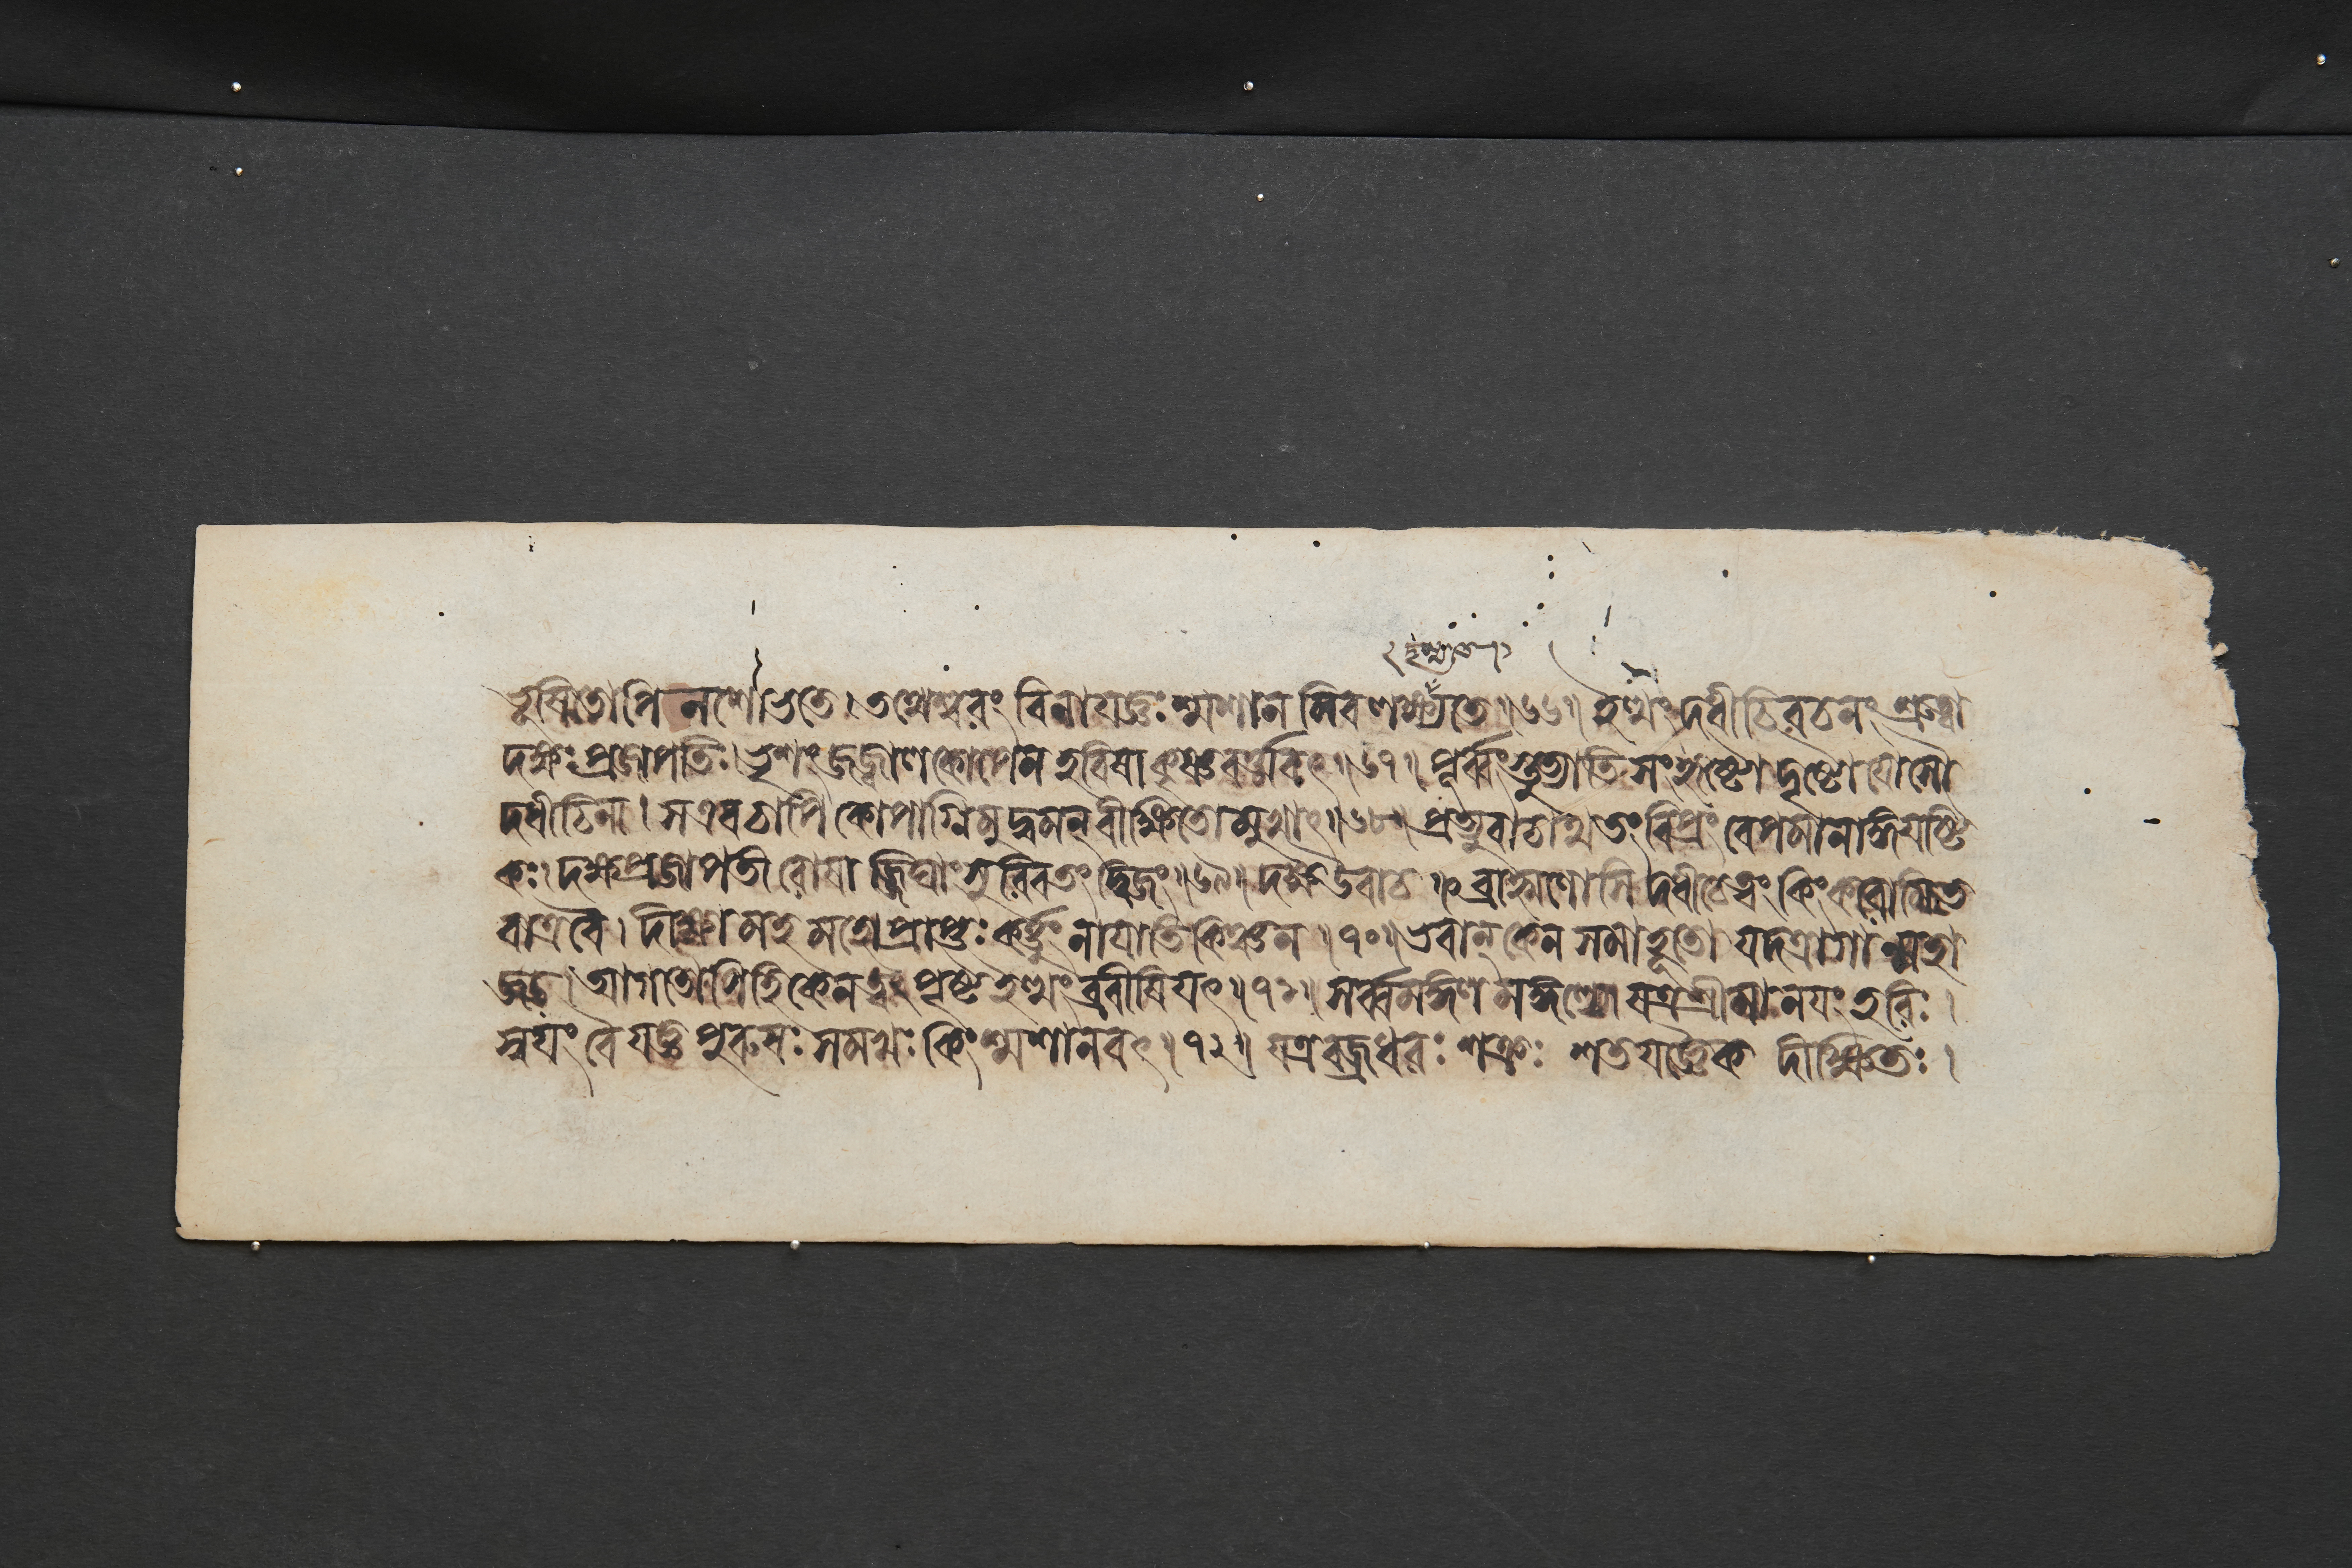 ভূষিতোপি ন শোভতে । তথেশ্বরং বিনা যজ্ঞঃ শ্মশানমিব লক্ষ্যতে ॥ ৬৬ ॥ ইত্থং দধীচিবচনং শ্রুত্বা
দক্ষঃ প্রজাপতিঃ । ভৃশং জজ্বাল কোপেন হবিষা কৃষ্ণবর্ত্মবৎ ॥ ৬৭ ॥ পূর্ব্বং স্তুত্যাতিসংহৃষ্টো দৃষ্টো যোসৌ
দধীচিনা । স এব চাপি কোপাগ্নিমুদ্বমন্ বীক্ষিতো মুখাৎ ॥ ৬৮ ॥ প্রত্যুবাচাথ তং বিপ্রং বেপমানাঙ্গযষ্টি
কঃ । দক্ষঃ প্রজাপতী রোষাজ্জিঘাংসুরিব তং দ্বিজং ॥ ৬৯ ॥ দক্ষ উবাচ ॥ ব্রাহ্মণোসি দধীচে ত্বং কিং করোমি ত
বাত্র বৈ । দীক্ষামহমহো প্রাপ্তঃ কর্ত্তুং নাযাতি কিঞ্চন ॥ ৭০ ॥ ভবান্ কেন সমাহূতো যদত্রাগান্মহা
জডঃ । আগতোসি হি কেন ত্বং পৃষ্ট ইত্থং ব্রবীষি যৎ ॥ ৭১ ॥ সর্ব্বমঙ্গলমঙ্গল্যো যত্র শ্রীমানযং হরিঃ ।
স্বযং বৈ যজ্ঞপুরুষঃ স মখঃ কিং শ্মশানবৎ ॥ ৭২ ॥ যত্র বজ্রধরঃ শক্রঃ শতযজ্ঞৈকদীক্ষিতঃ ।